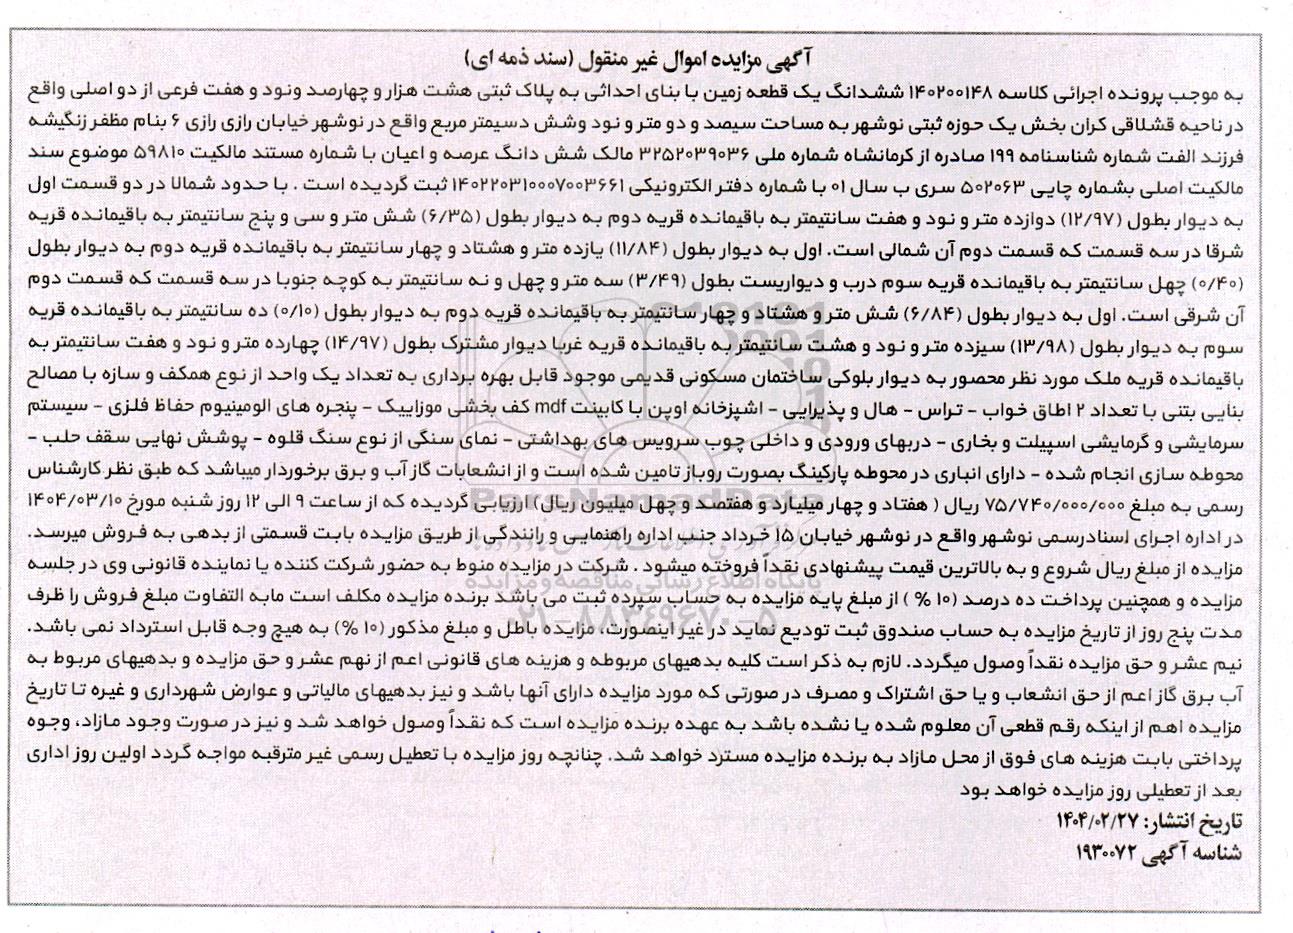 آگهی مزایده اموال غیر منقول (سند ذمه ای)
به موجب پرونده اجرائی کلاسه ۱۴۰۲۰۰۱۴۸ ششدانگ یک قطعه زمین با بنای احداثی به پلاک ثبتی هشت هزار و چهارصد ونود و هفت فرعی از دو اصلی واقع
در ناحیه قشلاقی کران بخش یک حوزه ثبتی نوشهر به مساحت سیصد و دو متر و نود وشش دسیمتر مربع واقع در نوشهر خیابان رازی رازی ۶ بنام مظفر زنگیشه
فرزند الفت شماره شناسنامه ۱۹۹ صادره از کرمانشاه شماره ملی ۳۲۵۲۰۳۹۰۳۶ مالک شش دانگ عرصه و اعیان با شماره مستند مالکیت ۵۹۸۱۰ موضوع سند
مالکیت اصلی بشماره چاپی ۵۰۲۰۶۳ سری ب سال ۰۱ با شماره دفتر الکترونیکی ۱۴۰۲۲۰۳۱۰۰۰۷۰۰۳۶۶۱ ثبت گردیده است . با حدود شمالا در دو قسمت اول
به دیوار بطول (۱۲/۹۷) دوازده متر و نود و هفت سانتیمتر به باقیمانده قریه دوم به دیوار بطول (۶/۳۵) شش متر و سی و پنج سانتیمتر به باقیمانده قریه
شرقا در سه قسمت که قسمت دوم آن شمالی است. اول به دیوار بطول (۱۱/۸۴) یازده متر و هشتاد و چهار سانتیمتر به باقیمانده قریه دوم به دیوار بطول
(۰/۴۰) چهل سانتیمتر به باقیمانده قریه سوم درب و دیواریست بطول (۳/۴۹) سه متر و چهل و نه سانتیمتر به کوچه جنوبا در سه قسمت که قسمت دوم
آن شرقی است. اول به دیوار بطول (۶/۸۴) شش متر و هشتاد و چهار سانتیمتر به باقیمانده قریه دوم به دیوار بطول (۰/۱۰) ده سانتیمتر به باقیمانده قریه
سوم به دیوار بطول (۱۳/۹۸) سیزده متر و نود و هشت سانتیمتر به باقیمانده قریه غربا دیوار مشترک بطول (۱۴/۹۷) چهارده متر و نود و هفت سانتیمتر به
باقیمانده قریه ملک مورد نظر محصور به دیوار بلوکی ساختمان مسکونی قدیمی موجود قابل بهره برداری به تعداد یک واحد از نوع همکف و سازه با مصالح
بنایی بتنی با تعداد ۲ اطاق خواب - تراس - هال و پذیرایی - اشپزخانه اوپن با کابینت mdf کف بخشی موزاییک - پنجره های الومینیوم حفاظ فلزی - سیستم
سرمایشی و گرمایشی اسپیلت و بخاری - دربهای ورودی و داخلی چوب سرویس های بهداشتی - نمای سنگی از نوع سنگ قلوه - پوشش نهایی سقف حلب -
محوطه سازی انجام شده - دارای انباری در محوطه پارکینگ بصورت روباز تامین شده است و از انشعابات گاز آب و برق برخوردار میباشد که طبق نظر کارشناس
رسمی به مبلغ ۷۵/۷۴۰/۰۰۰/۰۰۰ ریال ( هفتاد و چهار میلیارد و هفتصد و چهل میلیون ریال) ارزیابی گردیده که از ساعت ۹ الی ۱۲ روز شنبه مورخ ۱۴۰۴/۰۳/۱۰
در اداره اجرای اسنادرسمی نوشهر واقع در نوشهر خیابان ۱۵ خرداد جنب اداره راهنمایی و رانندگی از طریق مزایده بابت قسمتی از بدهی به فروش میرسد.
مزایده از مبلغ ریال شروع و به بالاترین قیمت پیشنهادی نقداً فروخته میشود . شرکت در مزایده منوط به حضور شرکت کننده یا نماینده قانونی وی در جلسه
مزایده و همچنین پرداخت ده درصد (۱۰ % ) از مبلغ پایه مزایده به حساب سپرده ثبت می باشد برنده مزایده مکلف است مابه التفاوت مبلغ فروش را ظرف
مدت پنج روز از تاریخ مزایده به حساب صندوق ثبت تودیع نماید در غیر اینصورت، مزایده باطل و مبلغ مذکور (۱۰ %) به هیچ وجه قابل استرداد نمی باشد.
نیم عشر و حق مزایده نقداً وصول میگردد. لازم به ذکر است کلیه بدهیهای مربوطه و هزینه های قانونی اعم از نهم عشر و حق مزایده و بدهیهای مربوط به
آب برق گاز اعم از حق انشعاب و یا حق اشتراک و مصرف در صورتی که مورد مزایده دارای آنها باشد و نیز بدهیهای مالیاتی و عوارض شهرداری و غیره تا تاریخ
مزایده اهم از اینکه رقم قطعی آن معلوم شده یا نشده باشد به عهده برنده مزایده است که نقداً وصول خواهد شد و نیز در صورت وجود مازاد، وجوه
پرداختی بابت هزینه های فوق از محل مازاد به برنده مزایده مسترد خواهد شد. چنانچه روز مزایده با تعطیل رسمی غیر مترقبه مواجه گردد اولین روز اداری
بعد از تعطیلی روز مزایده خواهد بود
تاریخ انتشار: ۱۴۰۴/۰۲/۲۷
شناسه آگهی ۱۹۳۰۰۷۲
ParsNamadData
پایگاه اطلاع رسانی مناقصه و مزایده
۰۲۱-۸۸۳۴۹۶۷۰-۵